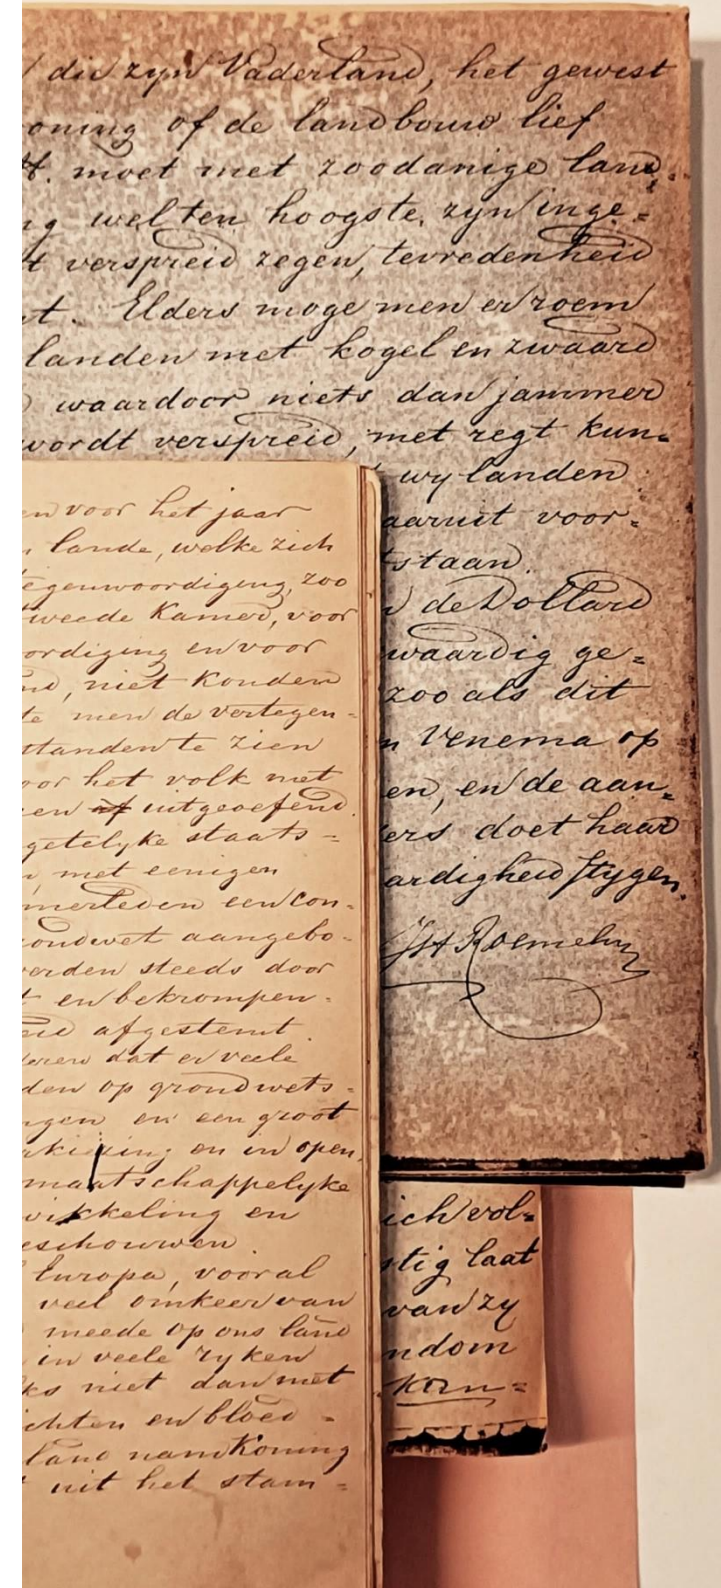 die zyn Vaderland, het gewest
oning of de landbouw lief
H. moet met zoodanige land,=
ng wel ten hoogste, zyn inge=
t verspreid zegen, tevredenheid
t. Elders moge men er roem
landen met kogel en zwaard
waardoor niets dan jammer
wordt verspreid, met regt kun=
wy landen
aaruit voor=
tstaan.
de Dollard
waardig ge=
zoo als dit
n Venema op
en, en de aan=
ers doet haar
ardigheid stygen.
en voor het jaar
lande, welke zich
egenwoordiging, zoo
tweede Kamer, voor
ordiging en voor
nd, niet konden
te men de vertegen=
standen te zien
oor het volk met
en of uitgeoefend.
getelyke staats=
, met eenigen
merleden een con=
ondwet aangebo=
erden steeds door
t en bekrompen=
eid afgestemt.
deren dat er veele
den op grondwets=
ngen en een groot
king en in open,
maatschappelyke
wikkeling en
eschouwen
Europa, vooral
veel omkeer van
meede op ons land
in veele ryken
ks niet dan met
ichten en bloed=
land nam Koning
uit het stam=
ich vol=
stig laat
van zy
ndom
korn=